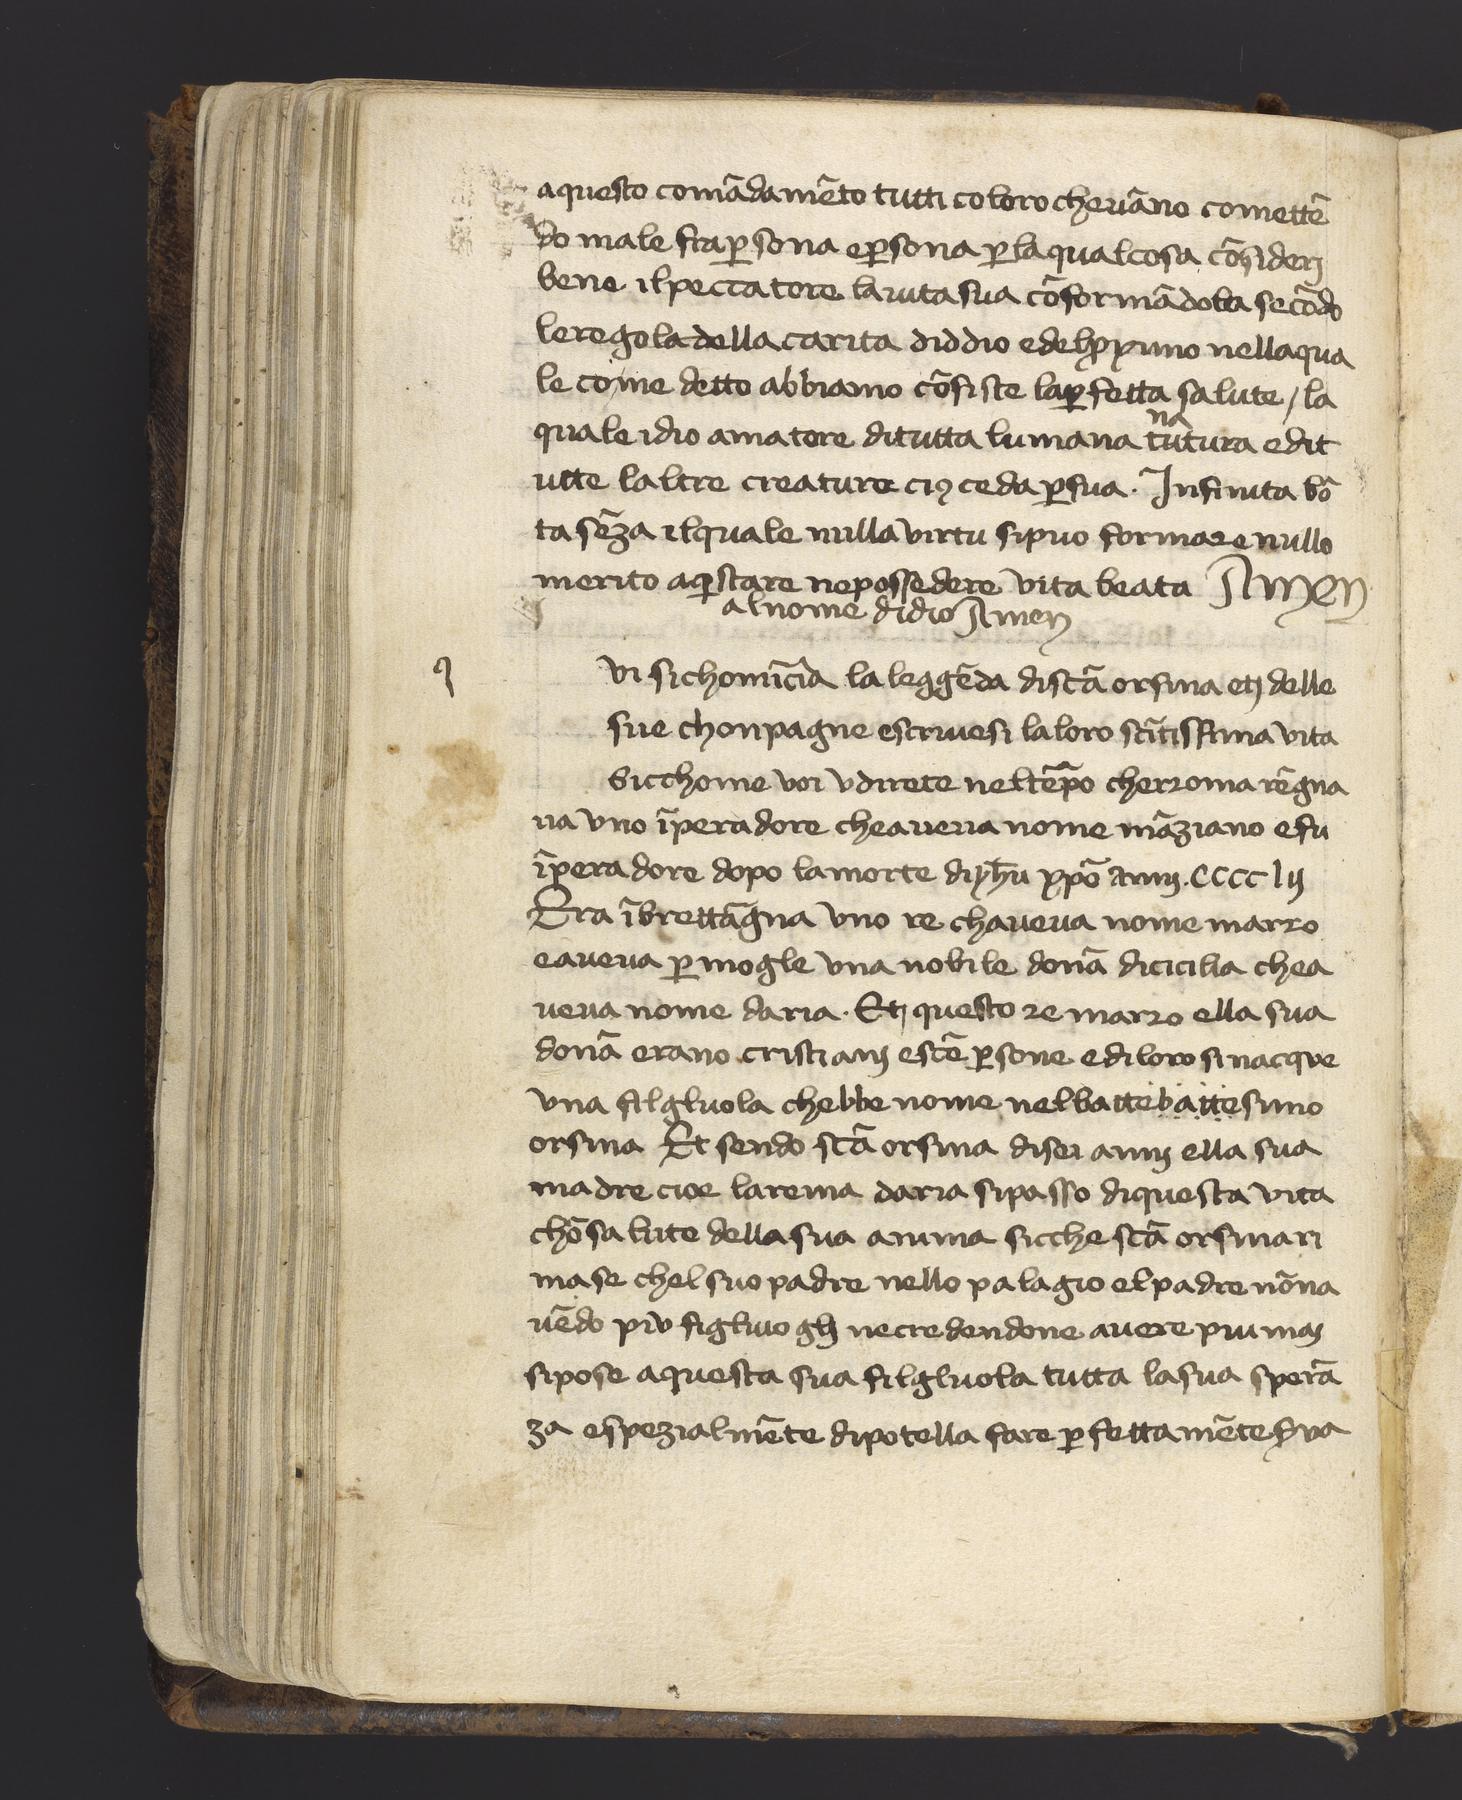 aquesto comādamēto tutti coloro chevāno comettē
do male fra p̱sona ep̱sona p̱ laqualcosa cōsiderj
bene ilpeccatore lavita sua cōformādola secōdo
leregola della carita diddio edelp̱ximo nellaqua
le come detto abbiamo cōsiste lap̱fetta salute / la
quale idio amatore ditutta lumana tutura edit
na
utte laltre creature cij ceda p̱sua. Infinita bō
ta sēza ilquale nulla virtu sipuo formare nullo
merito aq̱istare nepossedere vita beata Amen
alnome didio Amen
q
vi sichomīcia la leggēda discā orsina etj delle
sue chonpagne escrivesi laloro scītissima vita
Sicchome voi vdirete neltēpo cherroma rēgna
va vno īperadore cheaveva nome māziano efu
īperadore dopo lamorte diyhū xpō annj . CCCC lij
Era ībrettāgna vno re chaveva nome marro
eaveva p̱ mogle vna nobile donā dicicilia chea
veva nome daria. Etj questo re marro ella sua
donā erano cristianj escē p̱sone ediloro sinacque
vna filgluola chebbe nome nelbattebattesimo
orsina Et sendo scā orsina disei annj ella sua
madre cioe lareina daria sipasso diquesta vita
chōsalute della sua anima sicche scā orsinari
mase chel suo padre nello palagio elpadre nōna
vēdo piv figluoglj necredendone avere piu maj
sipose aquesta sua filgluola tutta lasua sperā
za espezialmēte dipotella fare p̱fettamēte s̱va